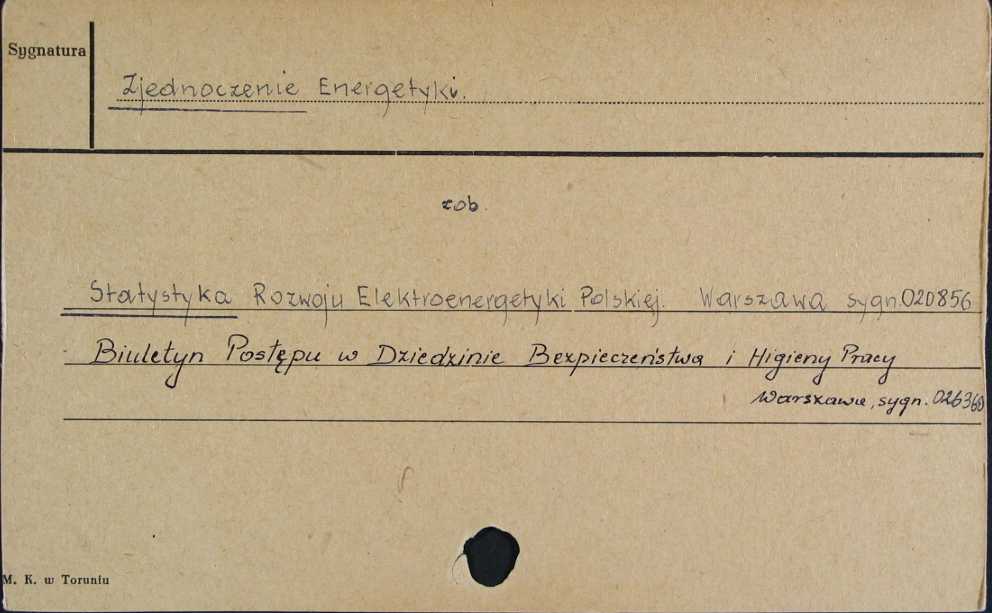 Sygnatura
Zjednoczenie Energetyki.
zob.
Statystyka Rozwoju Elektroenergetyki Polskiej. Warszawa sygn. 020856
Biuletyn Postępu w Dziedzinie Bezpieczeństwa i Higieny Pracy
Warszawa, sygn. 026360
M. K. w Toruniu